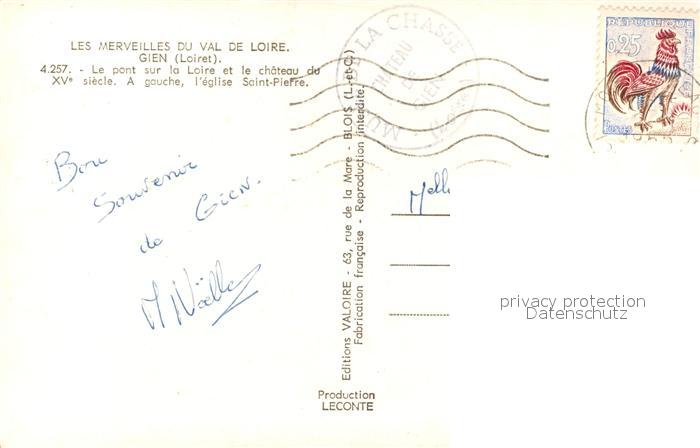 LES MERVEILLES DU VAL DE LOIRE.
GIEN (Loiret).
4.257. - Le pont sur la Loire et le château du
XVᵉ siècle. A gauche, l'église Saint-Pierre.
Bon
Souvenir
de Gien.
M Noëlle
Editions VALOIRE - 63, rue de la Mare - BLOIS (L.-et-C.)
Fabrication française - Reproduction interdite.
Production
LECONTE
DE LA CHASSE
CHÂTEAU
DE
GIEN
REPUBLIQUE
0,25
Postes
Melle
privacy protection
Datenschutz